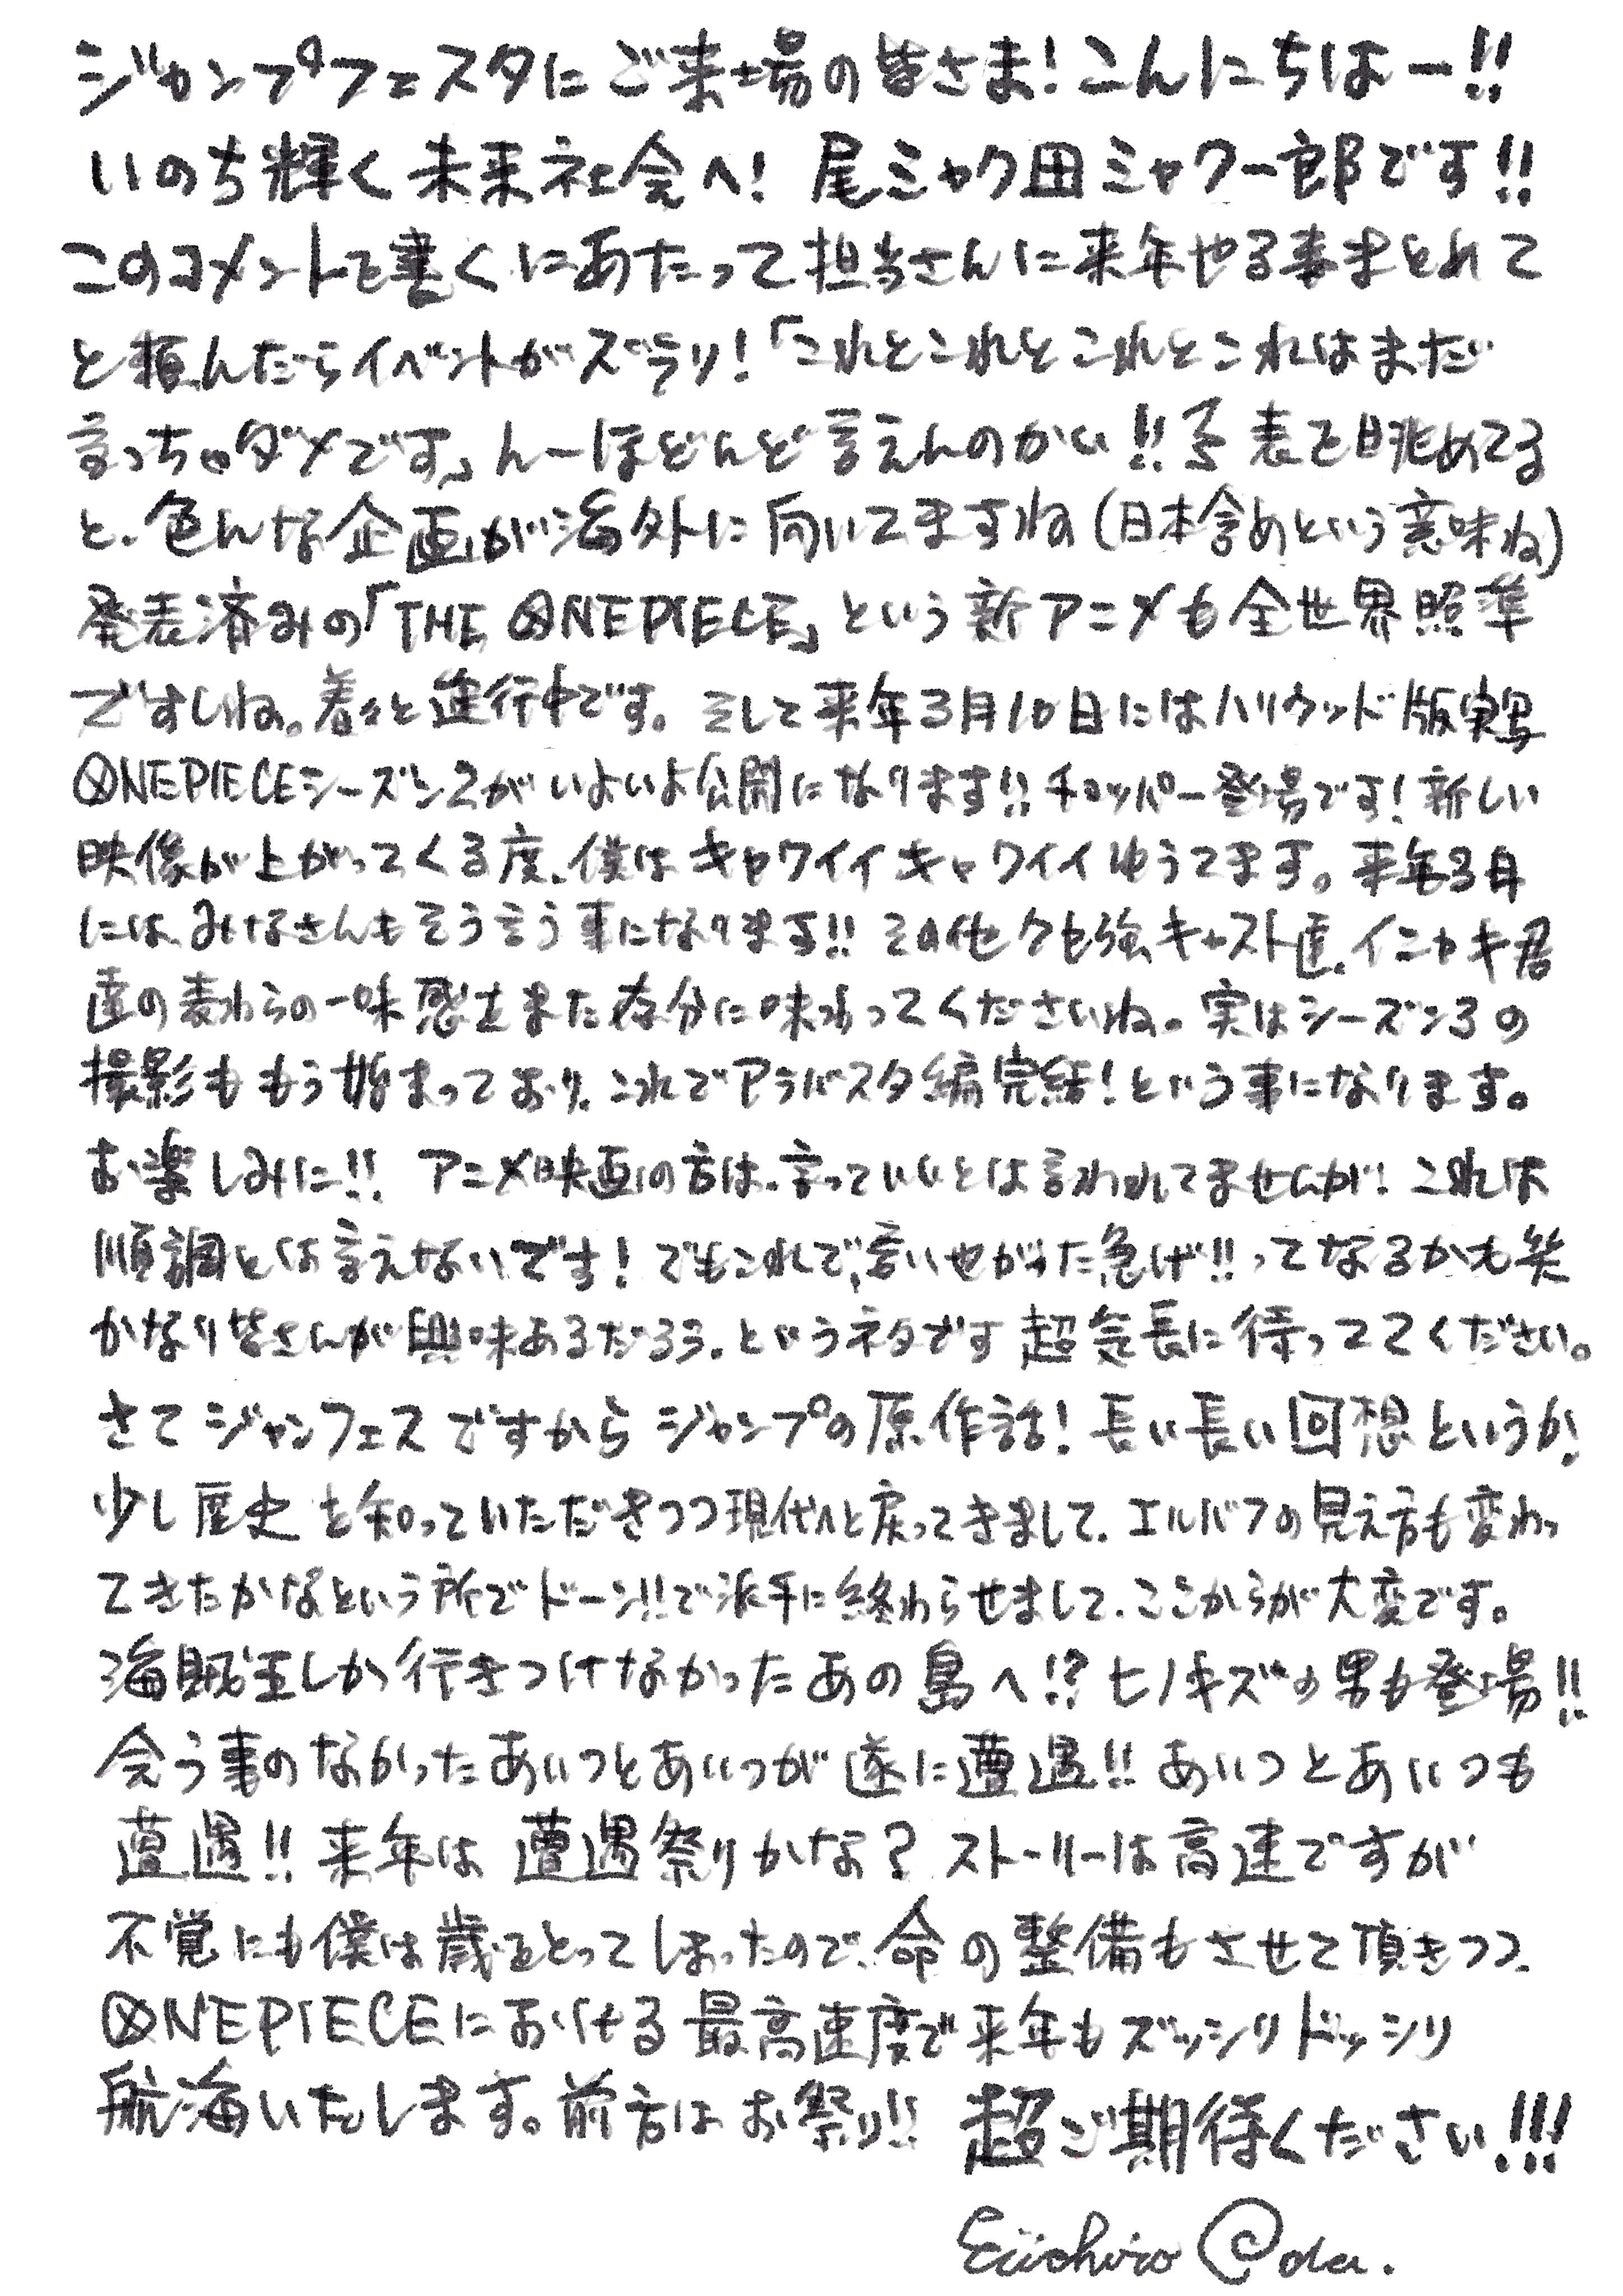 ジャンプフェスタにご来場の皆さま!こんにちはー!!
いのち輝く未来社会へ! 尾ミャク田ミャク一郎です!!
このコメントを書くにあたって担当さんに来年やる事まとめて
と頼んだらイベントがズラリ!「これとこれとこれとこれはまだ
言っちゃダメです」んーほとんど言えんのかい!! 表を眺めてる
と、色んな企画が海外に向いてますね(日本含めという意味ね)
発表済みの「THE ONE PIECE」という新アニメも全世界照準
ですしね。着々と進行中です。そして来年3月10日にはハリウッド版実写
ONE PIECEシーズン2がいよいよ公開になります!!チョッパー登場です!新しい
映像が上がってくる度、僕はキャワイイキャワイイゆうてます。来年3月
には、みなさんもそう言う事になります!!その他クセ強キャスト達、イニャキ君
達の麦わらの一味感をまた存分に味わってくださいね。実はシーズン3の
撮影ももう始まっており、これでアラバスタ編完結!という事になります。
お楽しみに!! アニメ映画の方は、言っていいとは言われてませんが!これは
順調とは言えないです!でもこれで、言いやがった急げ!!ってなるかも笑
かなり皆さんが興味あるだろう、というネタです 超気長に待っててください。
さてジャンフェスですからジャンプの原作話!長い長い回想というか!
少し歴史を知っていただきつつ現代へと戻ってきまして、エルバフの見え方も変わっ
てきたかなという所でドーン!!で派手に終わらせまして、ここからが大変です。
海賊王しか行きつけなかったあの島へ!?ヒノキズの男も登場!!
会う事のなかったあいつとあいつが遂に遭遇!!あいつとあいつも
遭遇!!来年は遭遇祭りかな?ストーリーは高速ですが
不覚にも僕は歳をとってしまったので、命の整備もさせて頂きつつ、
ONE PIECEにおける最高速度で来年もズッシリドッシリ
航海いたします。前方はお祭り!! 超ご期待ください!!!
Eiichiro Oda.